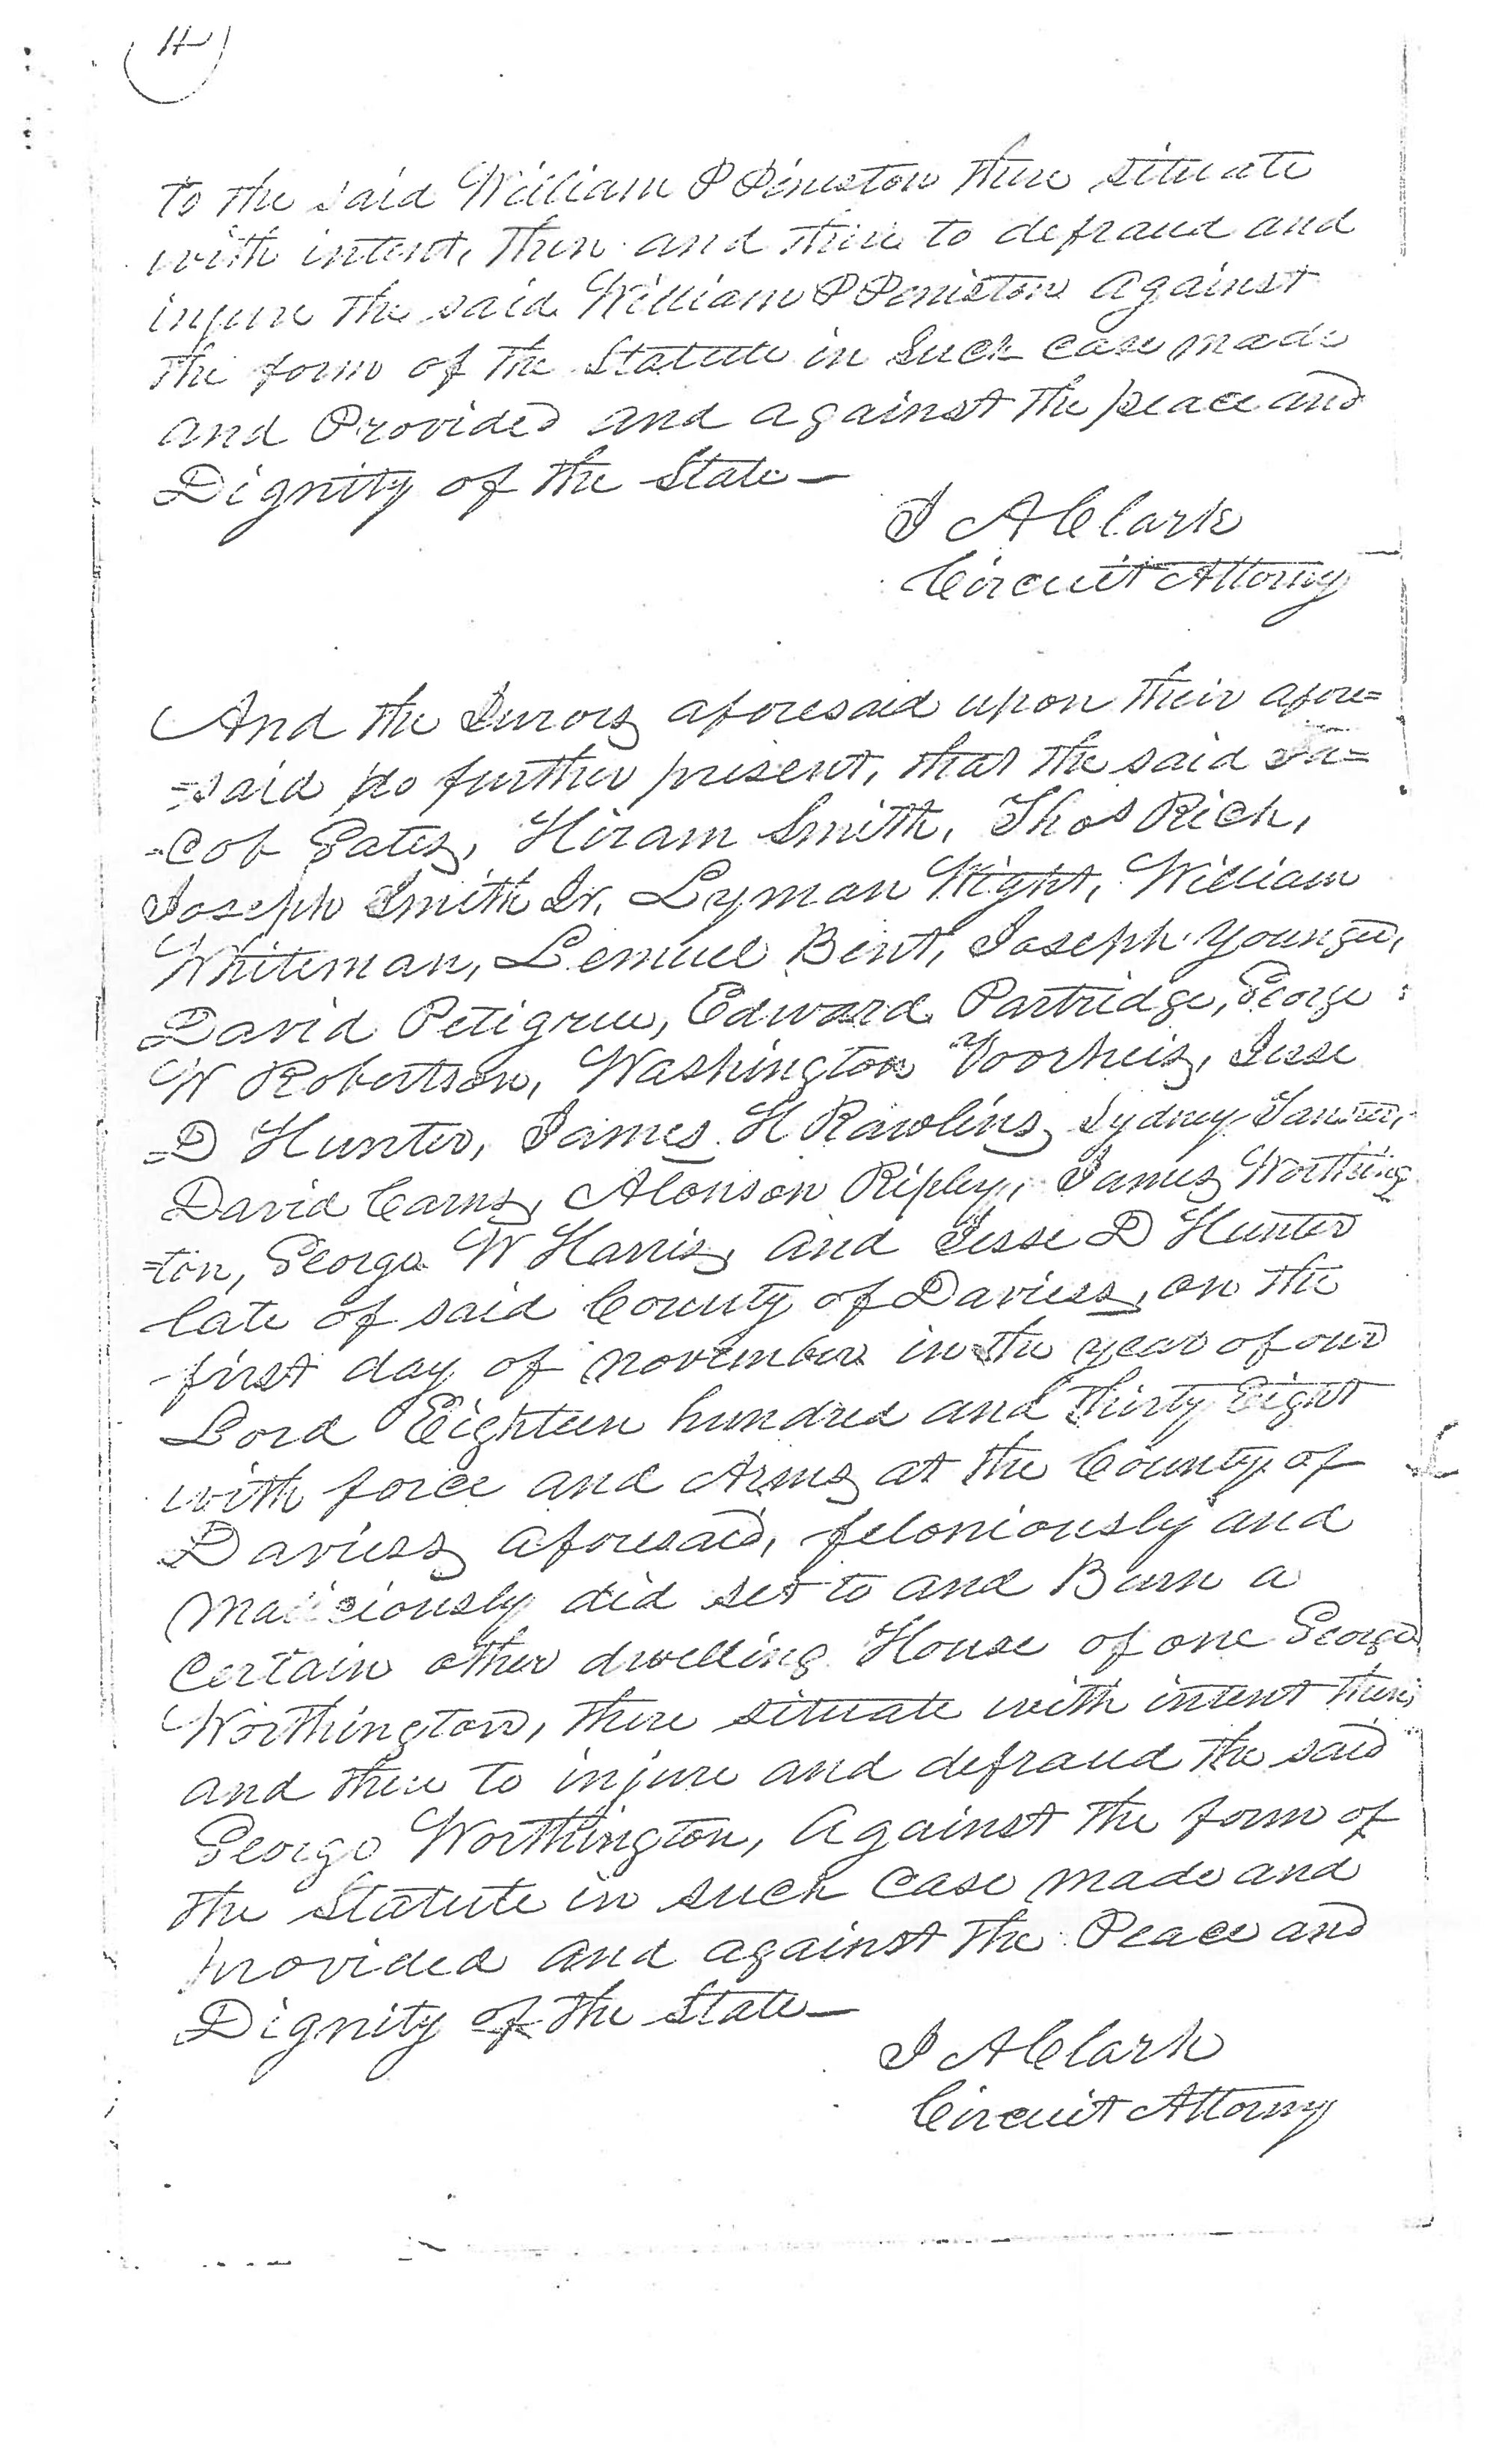 to the said William P Peniston there situate
with intent, then and there to defraud and
injure the said William P Peniston against
the form of the Statute in Such case made
and Provided and against the peace and
Dignity of the State—
J A Clark
Circuit Attorny
And the Jurors aforesaid upon their afore=
=said do further present, that the said Ja=
=cob Gates, Hiram Smith, Thos Rich,
Joseph Smith Jr, Lyman Wight, William
Whiteman, Lemuel Bent, Joseph Younger,
David Petigrew, Edward Partridge, George
W Robertson, Washington Voorheis, Jesse
D Hunter, James H Rawlins, Sydney Tanner,
David Carns, Alonson Ripley, James Worthing
=ton, George W Harris, and Jesse D Hunter
late of said County of Daviess, on the
first day of november in the year of our
Lord Eighteen hundred and Thirty Eight
with force and Arms at the County of
Daviess aforesaid, feloniously and
Maliciously did set to and Burn a
certain other dwelling House of one George
Worthington, there situate with intent then
and there to injure and defraud the said
George Worthington, Against the form of
the Statute in such case made and
provided and against the Peace and
Dignity of the State—
J A Clark
Circuit Attorny